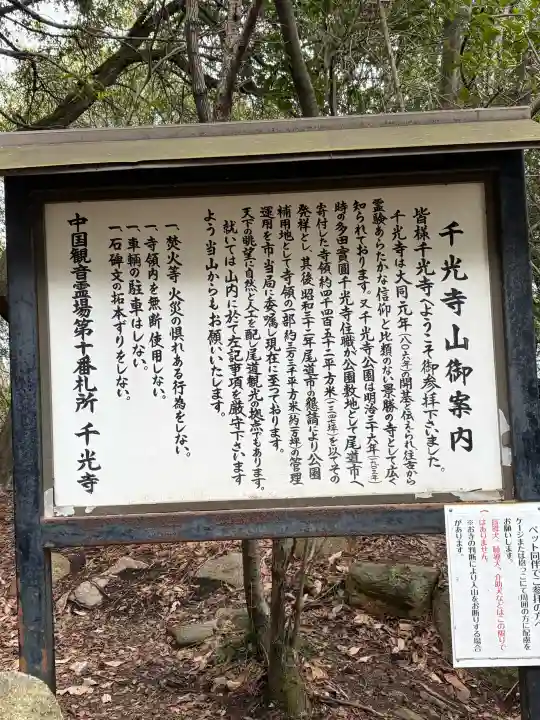 千光寺山御案内
皆様千光寺へようこそ御参拝下さいました。
千光寺は大同元年(八〇六年)の開基と伝えられ往古から
霊験あらたかな信仰と比類のない景勝の寺として広く
知られております。又千光寺公園は明治三十六年(一九〇三年)
時の多田實圓千光寺住職が公園敷地として尾道市へ
寄付した寺領約四千四百五十二平方米(一三四九坪)を以てその
発祥とし、其後昭和三十二年尾道市の懇請により公園
補用地として寺領の一部約三万三千平方米(約一万坪)の管理
運用を市当局に委嘱し現在に至っております。
天下の眺望に自然と人工を配し尾道観光の拠点でもあります。
就いては山内に於て左記事項を厳守下さいます
よう当山からもお願いいたします。
一、焚火等 火災の惧れある行為をしない。
一、寺領内を無断使用しない。
一、車輌の駐車はしない。
一、石碑文の拓本ずりをしない。
中国観音霊場第十番札所 千光寺
ペット同伴でご参拝の方へ
ケージまたは抱っこにて周囲の方に配慮を
お願いします。
(盲導犬、聴導犬、介助犬などはこの限りで
はありません。
※お寺の判断により入山をお断りする場合
があります。